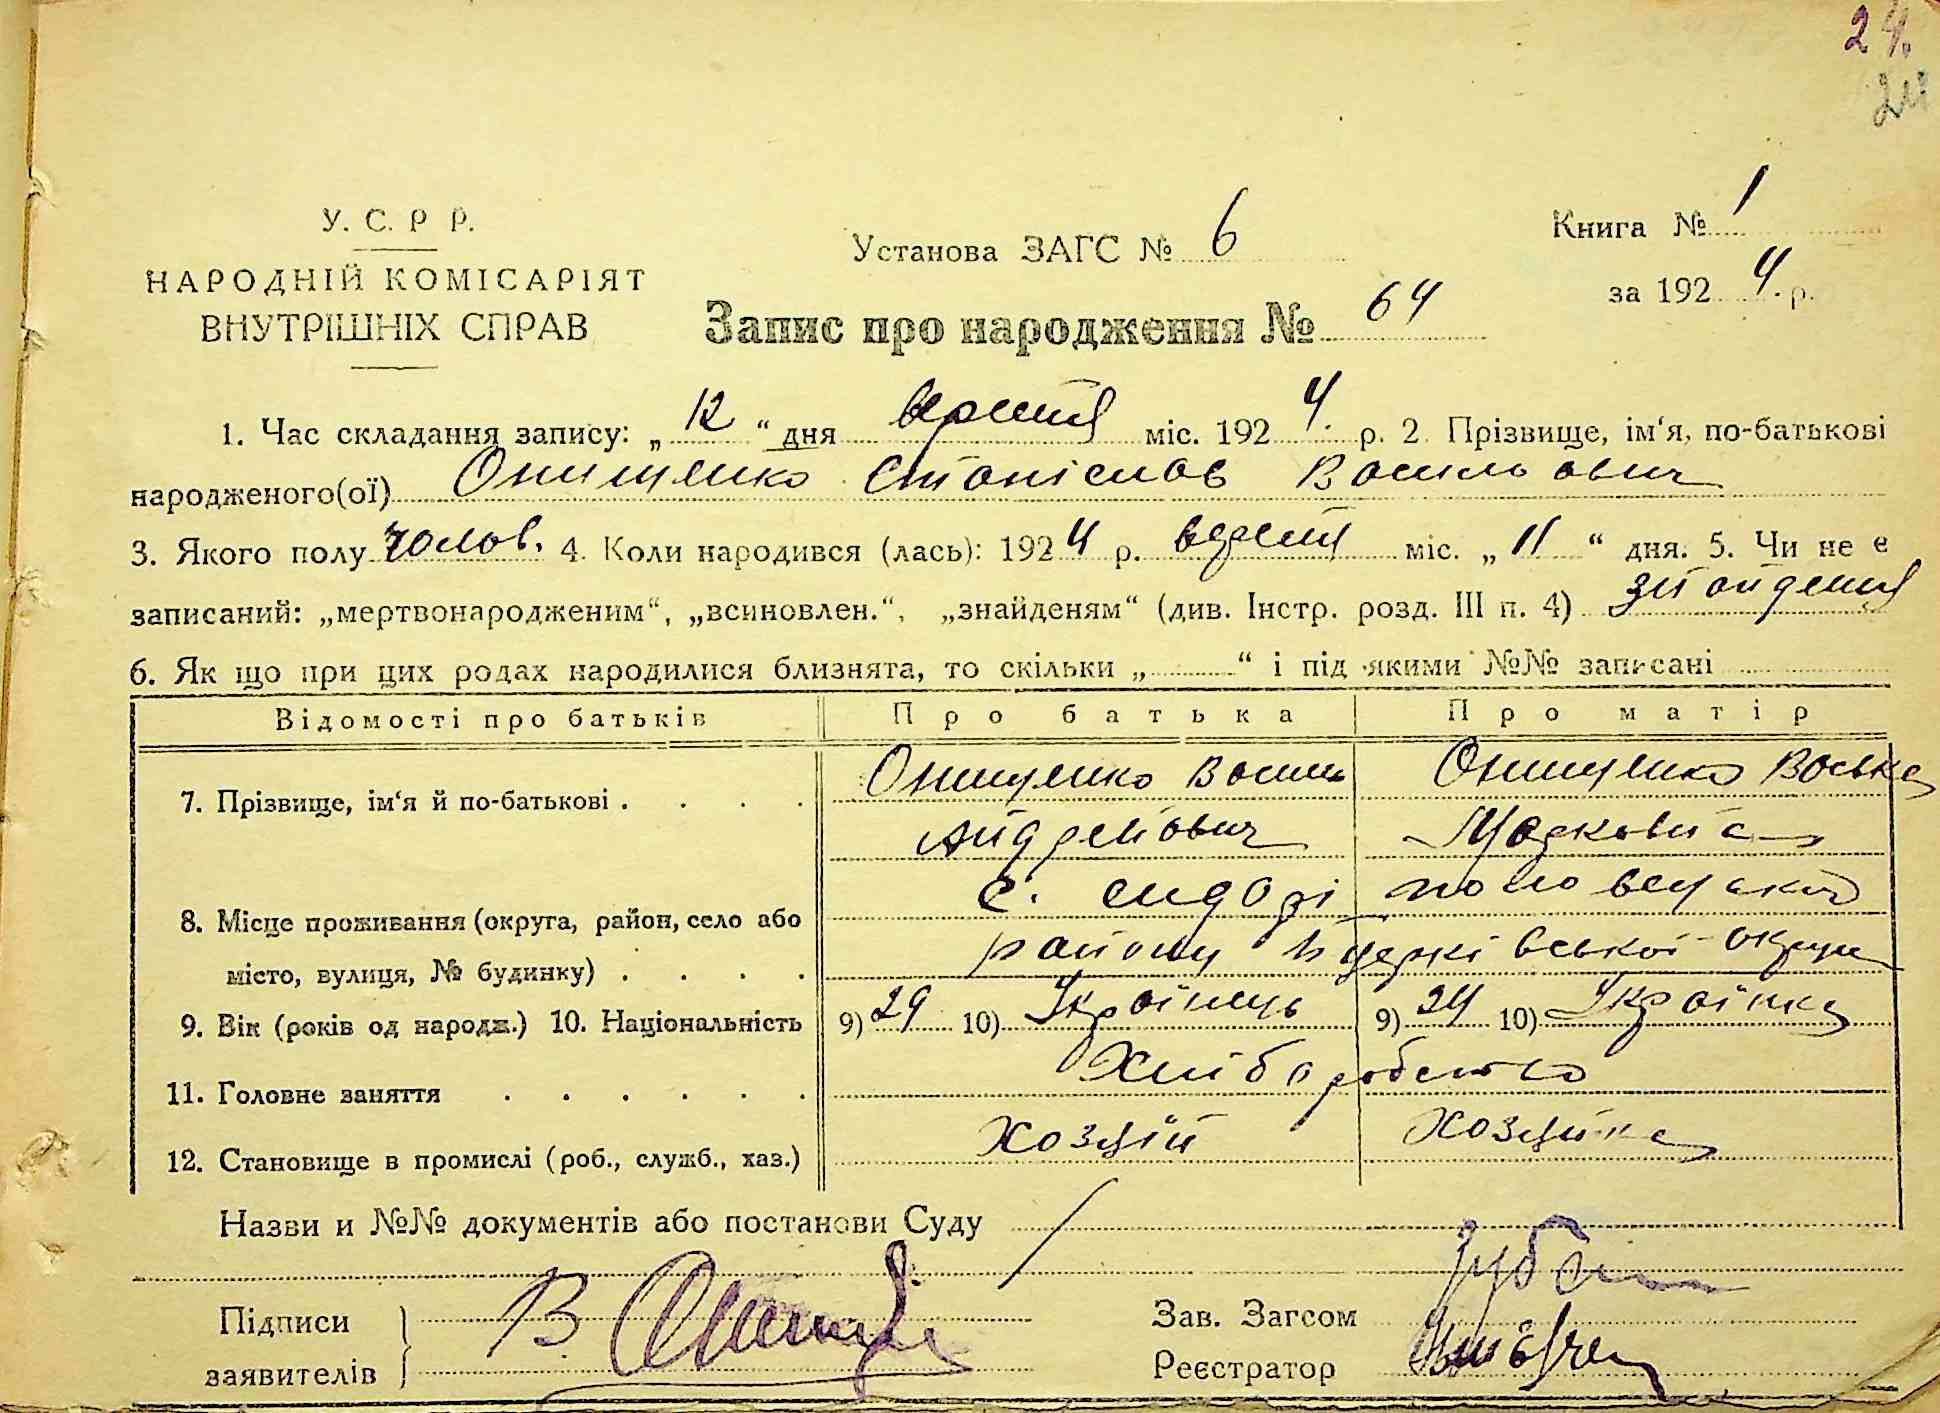 24.
24
У. С. Р Р.
НАРОДНІЙ КОМІСАРІЯТ
ВНУТРІШНІХ СПРАВ
Установа ЗАГС № 6
Книга № 1
за 1924 р.
Запис про народження № 64
1. Час складання запису: „12“ дня вересня міс. 1924 р. 2. Прізвище, ім‘я, по-батькові
народженого(ої) Онищенко Станіслав Васильович
3. Якого полу чолов. 4. Коли народився (лась): 1924 р. вересня міс. „11“ дня. 5. Чи не є
записаний: „мертвонародженим“, „всиновлен.“, „знайденям“ (див. Інстр. розд. III п. 4)
6. Як що при цих родах народилися близнята, то скільки „ “ і під якими №№ записані
Відомості про батьків Про батька Про матір
7. Прізвище, ім‘я й по-батькові . . . . Онищенко Василь Онищенко Васька
Андрейович Марковна
8. Місце проживання (округа, район, село або с. Сидорі
місто, вулиця, № будинку) . . . . району округи
9. Вік (років од народж.) 10. Національність 9) 29 10) Украінець 9) 24 10) Украінка
11. Головне заняття . . . . . . Хліборобство
12. Становище в промислі (роб., служб., хаз.) Хозяїн Хозяйка
Назви и №№ документів або постанови Суду
Підписи
заявителів В
Зав. Загсом
Реєстратор